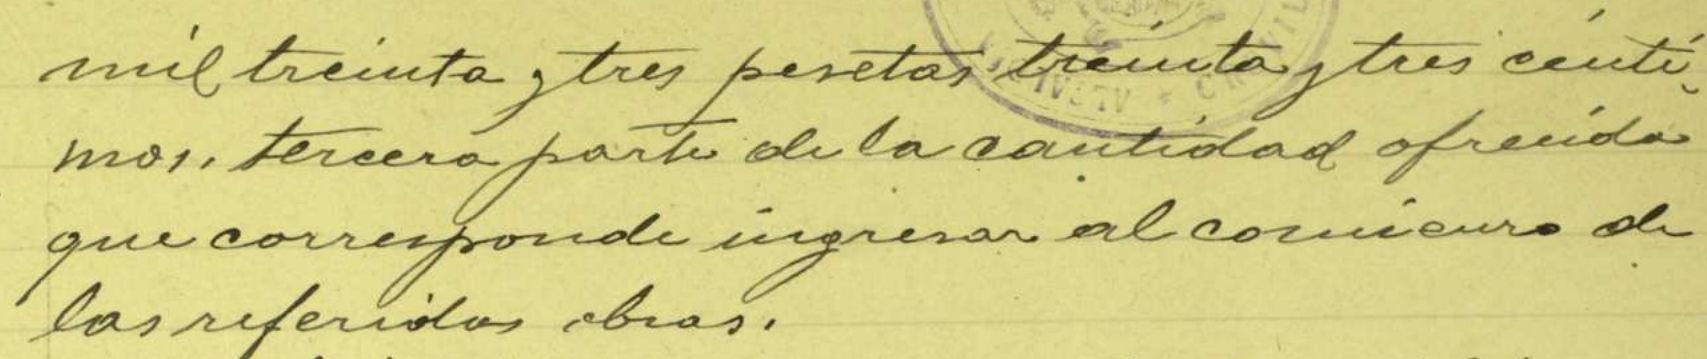 mil treinta y tres pesetas treinta y tres cénti-
mos. tercera parte de la cantidad ofrecida
que corresponde ingresar al comienzo de
las referidas obras.